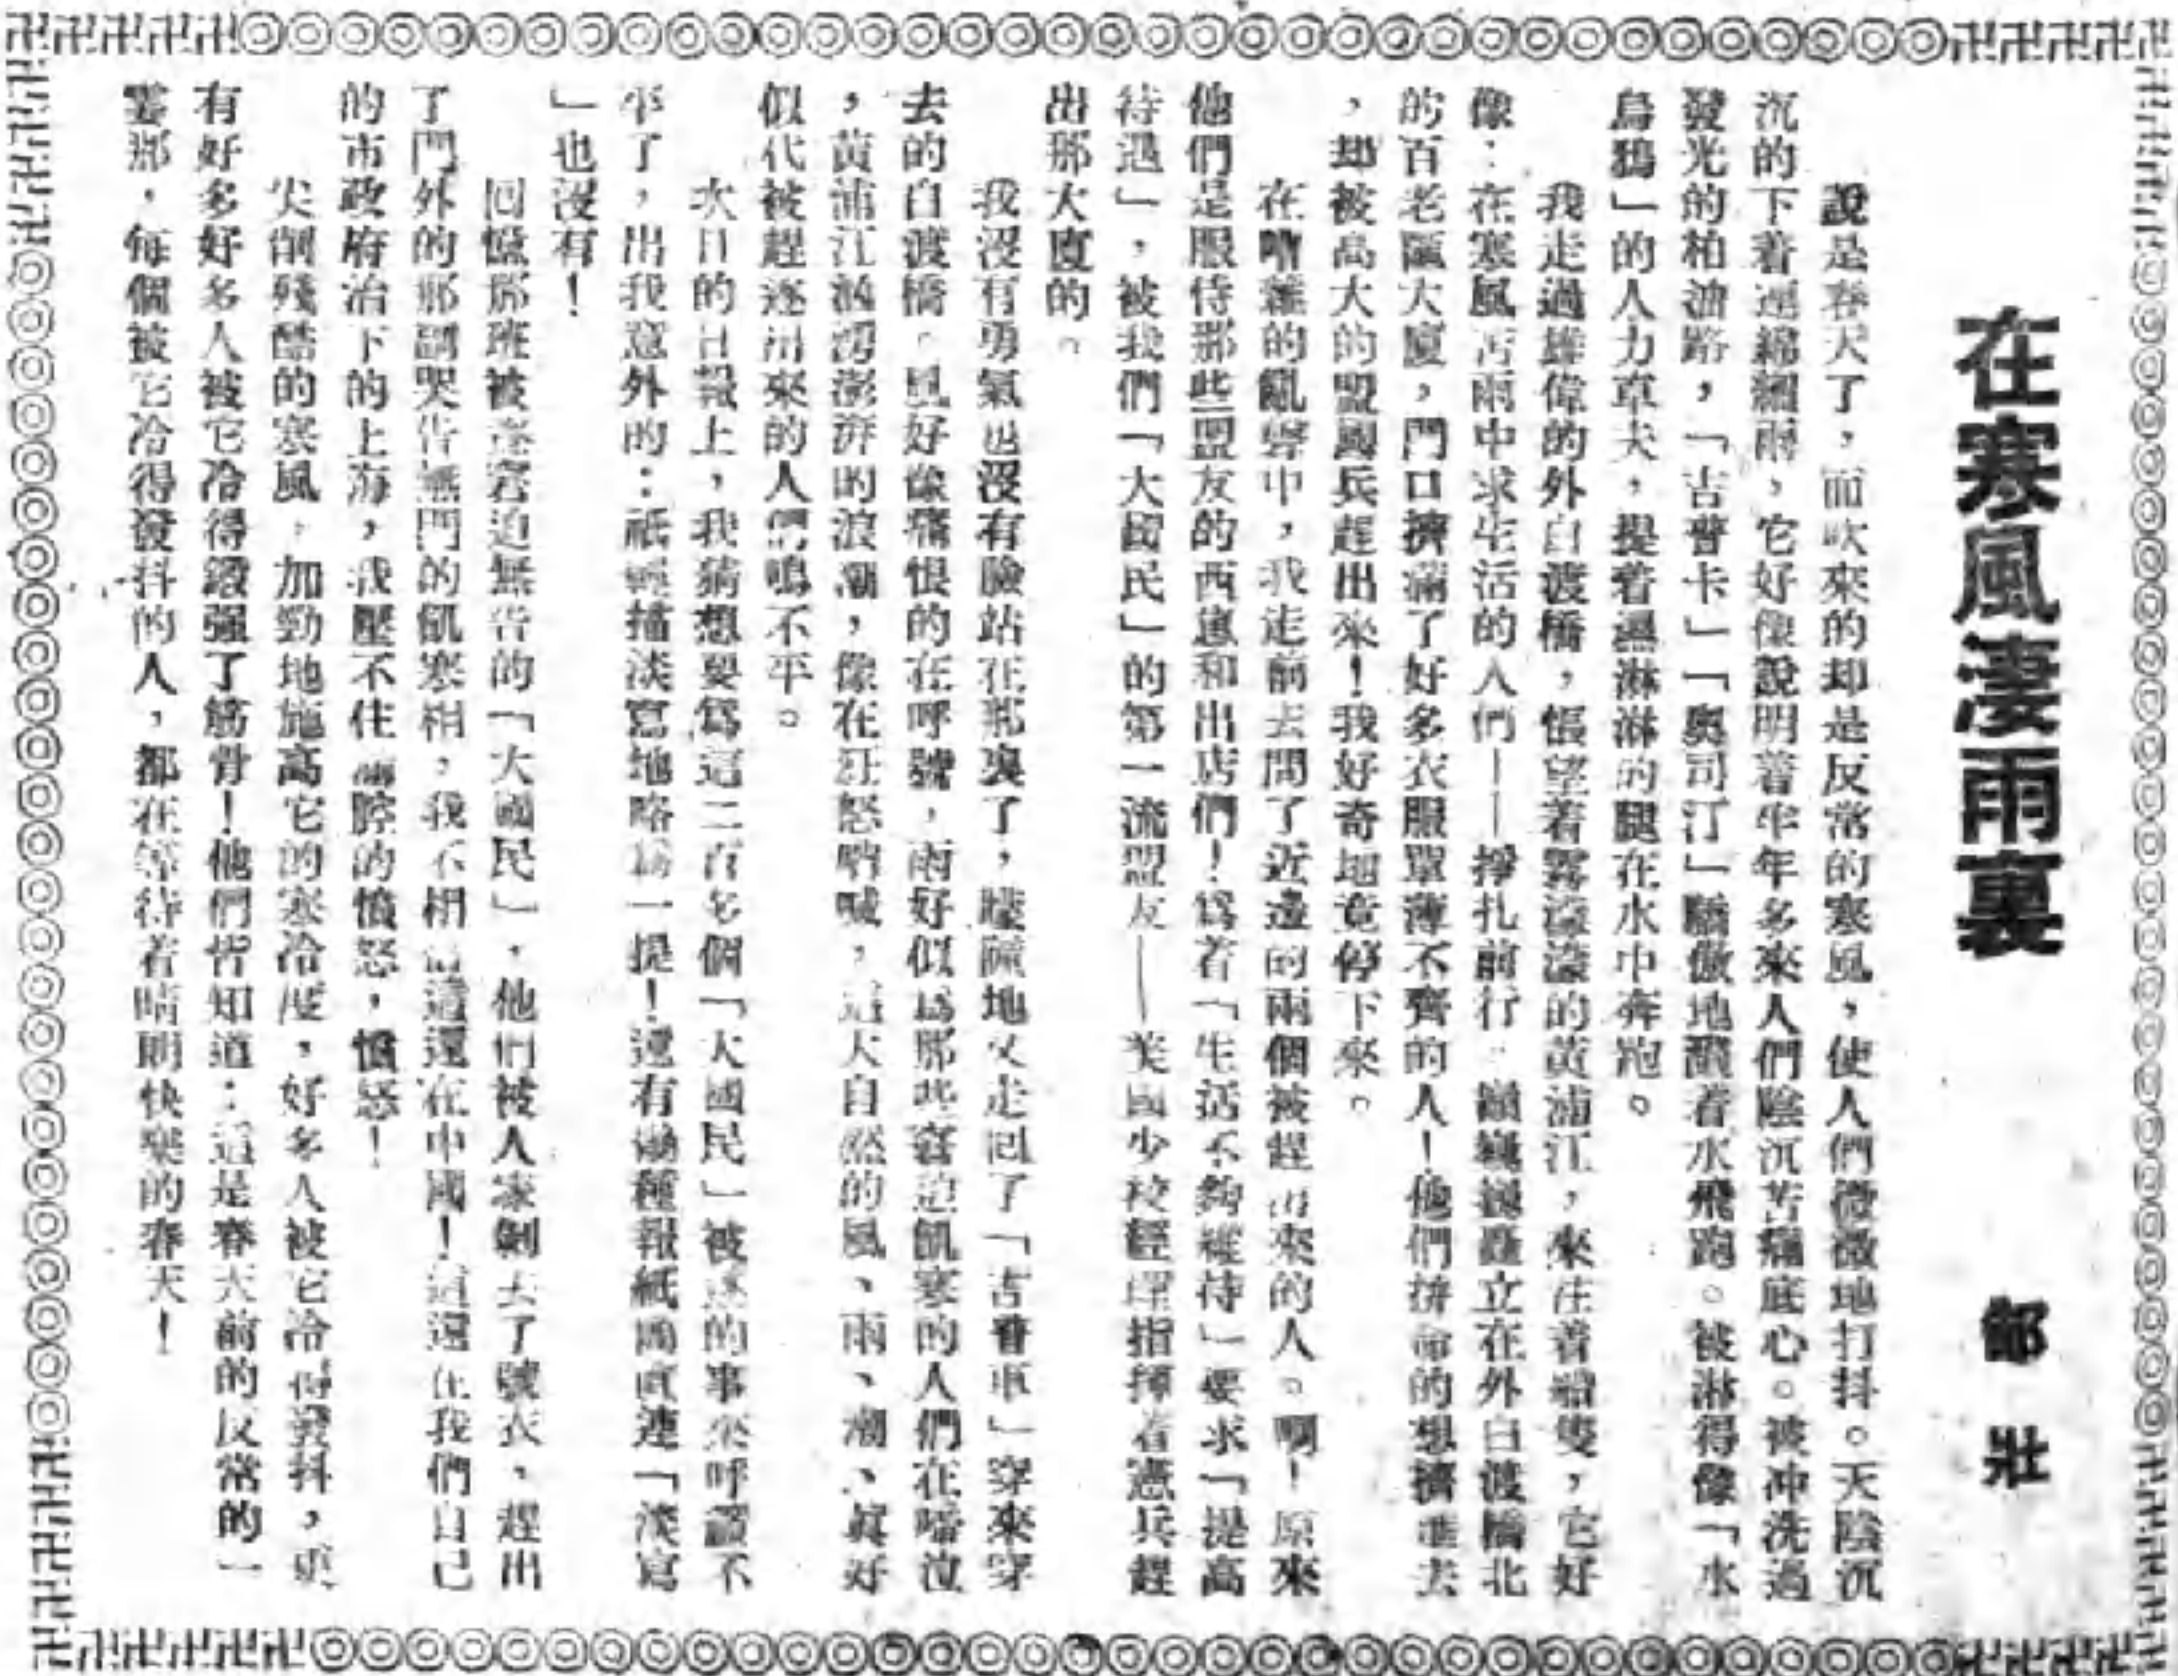 在寒風淒雨裏
郁壯
說是春天了，而吹來的却是反常的寒風，使人們微微地打抖。天陰沉
沉的下着連綿細雨，它好像說明着半年多來人們陰沉苦痛底心。被冲洗過
發光的柏油路，「吉普卡」「奧司汀」驕傲地濺着水飛跑。被淋得像「水
烏鴉」的人力車夫，提着濕淋淋的腿在水中奔跑。
我走過雄偉的外白渡橋，悵望着霧濛濛的黃浦江，來往着船隻，它好
像：在寒風苦雨中求生活的人們——掙扎前行。巍巍矗立在外白渡橋北
的百老匯大廈，門口擠滿了好多衣服單薄不齊的人！他們拚命的想擠進去
，却被高大的盟國兵趕出來！我好奇地竟停下來。
在嘈雜的亂聲中，我走前去問了近邊的兩個被趕出來的人。啊！原來
他們是服侍那些盟友的西崽和出店們！爲着「生活不夠維持」要求「提高
待遇」，被我們「大國民」的第一流盟友——美國少校經理指揮着憲兵趕
出那大廈的。
我沒有勇氣也沒有臉站在那裏了，朦朧地又走回了「吉普車」穿來穿
去的白渡橋。風好像痛恨的在呼號，雨好似爲那些窘迫飢寒的人們在啼泣
，黃浦江洶湧澎湃的浪潮，像在狂怒吶喊，這大自然的風、雨、潮、眞好
似代被趕逐出來的人們鳴不平。
次日的日報上，我猜想要爲這二百多個「大國民」被逐的事來呼籲不
平了，出我意外的：祇輕描淡寫地略爲一提！還有幾種報紙簡直連「淡寫
」也沒有！
回憶那班被窘迫無告的「大國民」，他們被人家剝去了號衣、趕出
了門外的那副哭告無門的飢寒相，我不相信這還在中國！這還在我們自己
的市政府治下的上海，我壓不住滿腔的憤怒，憤怒！
尖削殘酷的寒風，加勁地施高它的寒冷度，好多人被它冷得發抖，更
有好多好多人被它冷得鍛强了筋骨！他們皆知道：這是春天前的反常的一
霎那，每個被它冷得發抖的人，都在等待着晴朗快樂的春天！